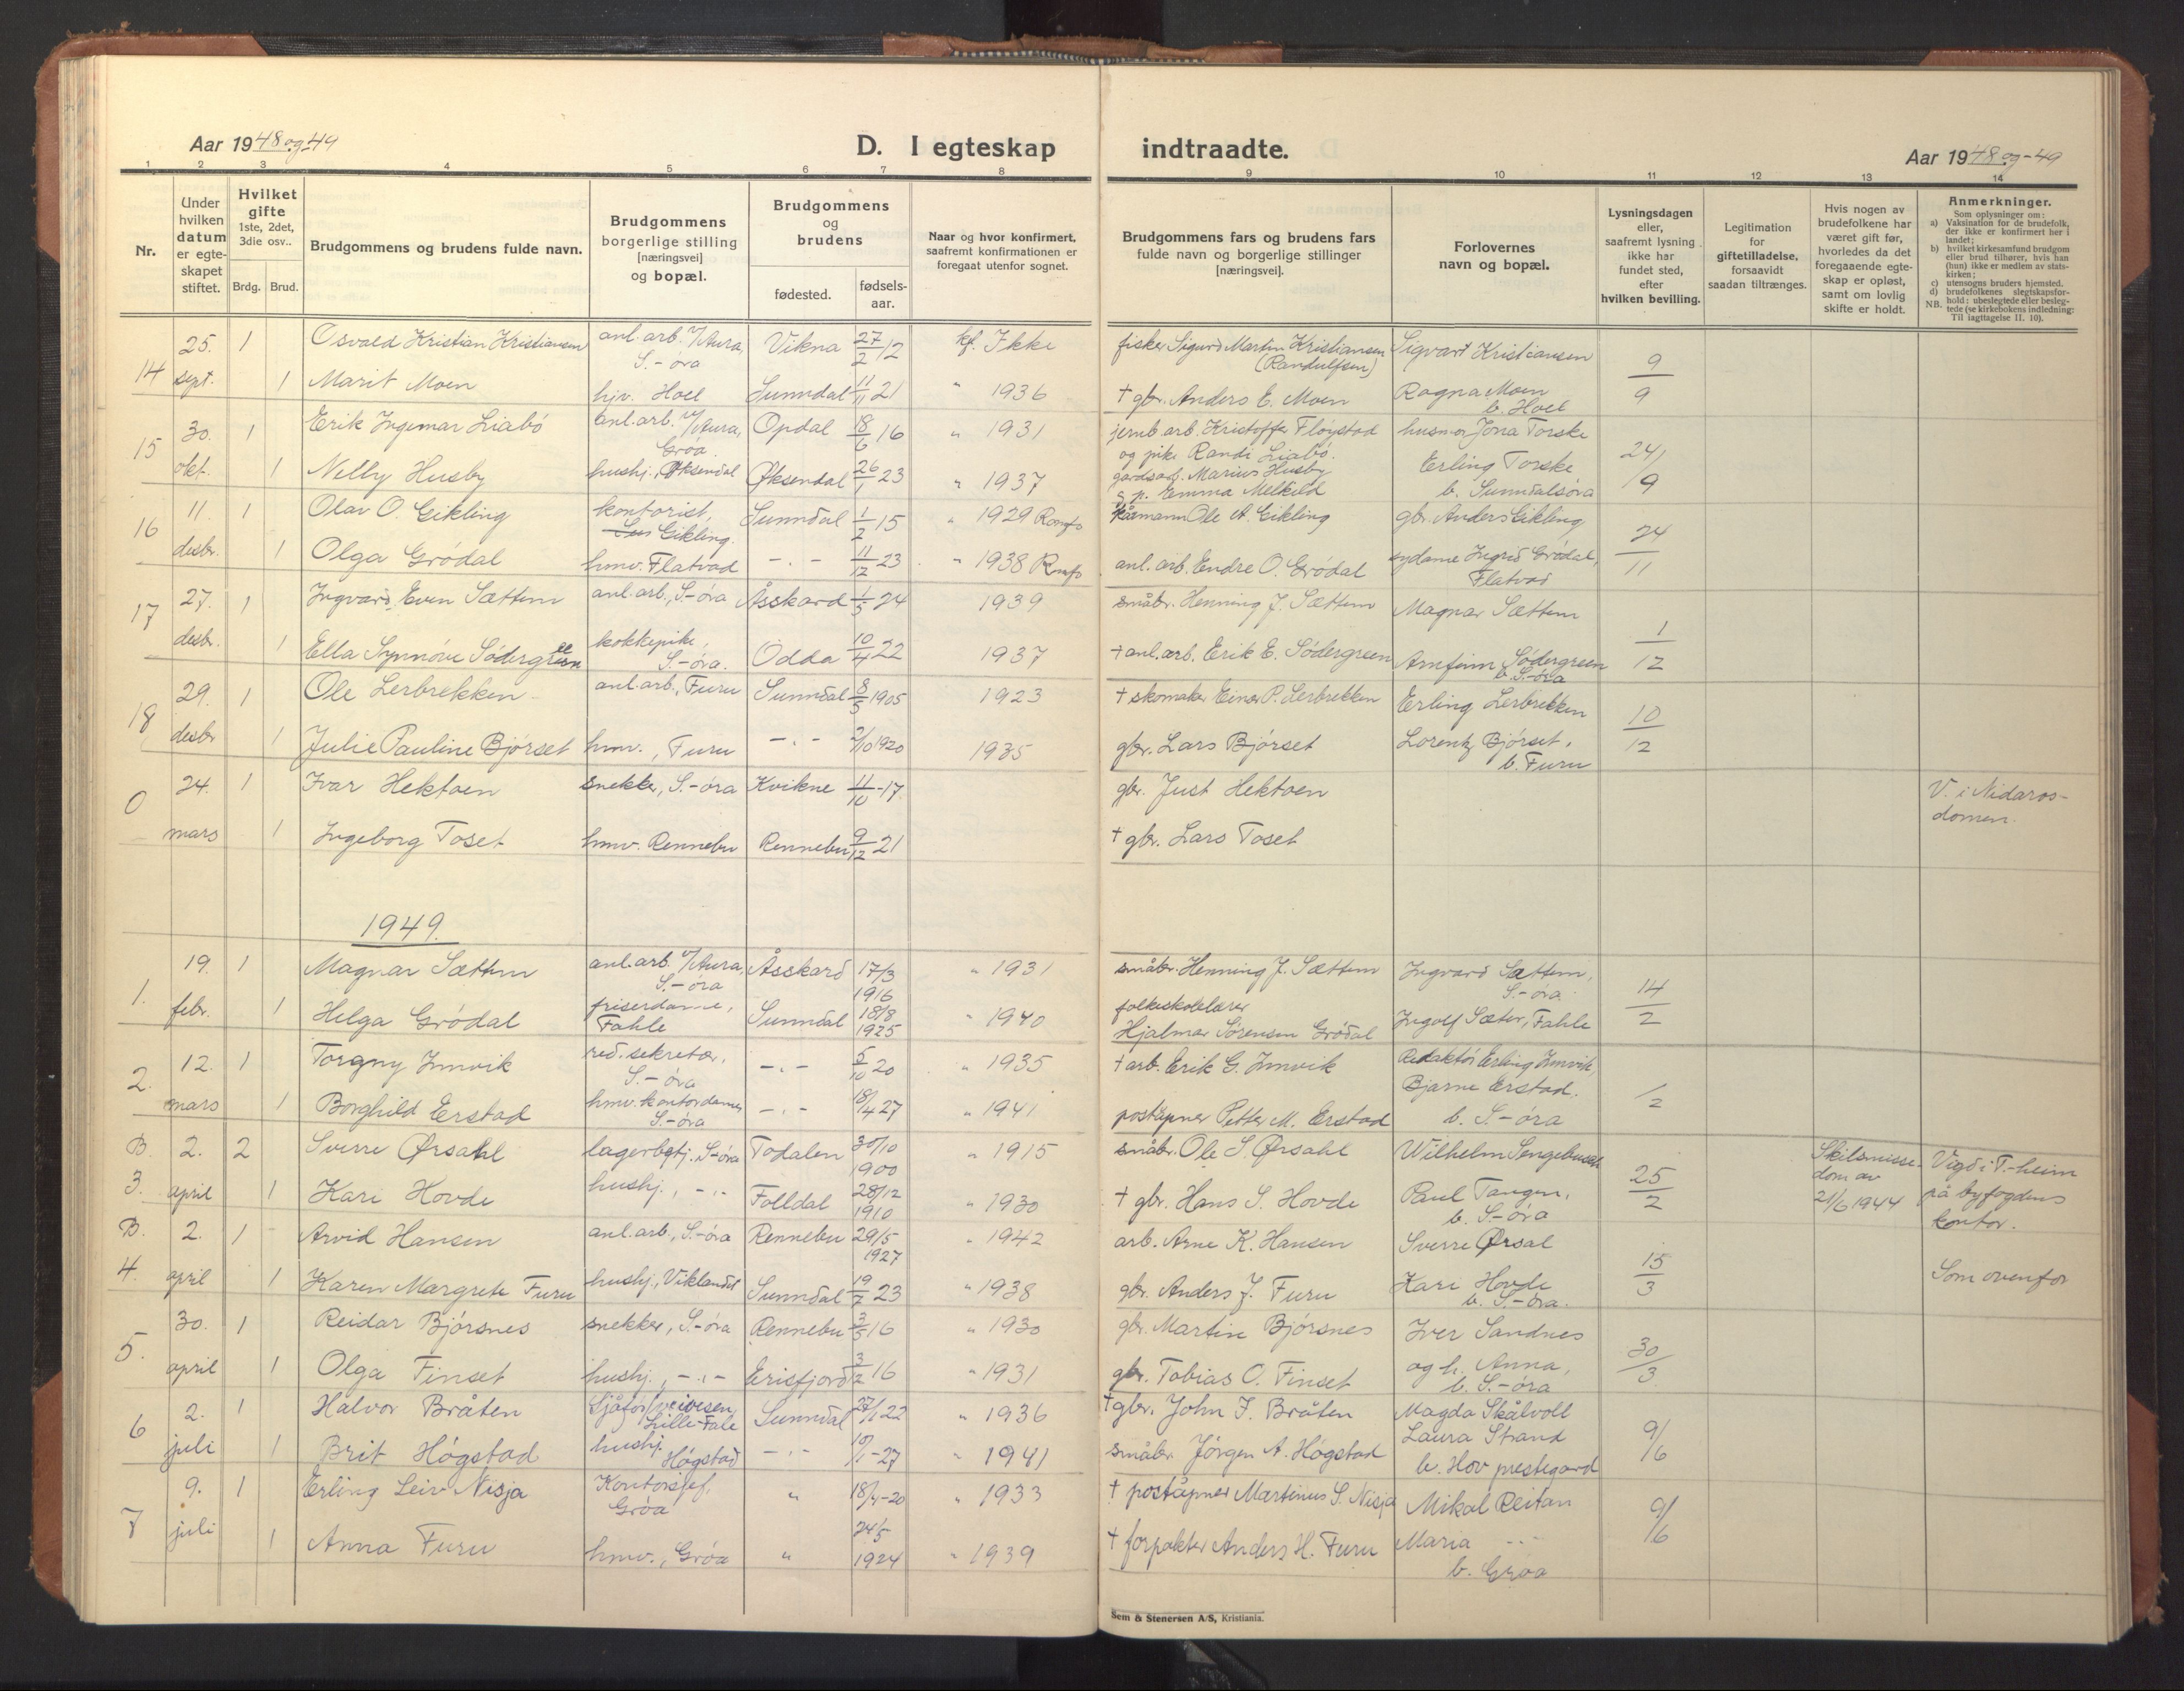 Aar 1948 og -49
D. I egteskap indtraadte.
Aar 1948 og -49
1 2 3 4 5 6 7 8 9 10 11 12 13 14
Nr.
Under hvilken datum er egte-skapet stiftet.
Hvilket gifte 1ste, 2det, 3die osv..
Brdg. Brud.
Brudgommens og brudens fulde navn.
Brudgommens borgerlige stilling [næringsvei] og bopæl.
Brudgommens og brudens
fødested.
fødsels-aar.
Naar og hvor konfirmert, saafremt konfirmationen er foregaat utenfor sognet.
Brudgommens fars og brudens fars fulde navn og borgerlige stillinger [næringsvei].
Forlovernes navn og bopæl.
Lysningsdagen eller, saafremt lysning ikke har fundet sted, efter hvilken bevilling.
Legitimation for giftetilladelse, forsaavidt saadan tiltrænges.
Hvis nogen av brudefolkene har været gift før, hvorledes da det foregaaende egte-skap er opløst, samt om lovlig skifte er holdt.
Anmerkninger.
Som oplysninger om:
a) Vaksination for de brudefolk, der ikke er konfirmert her i landet;
b) hvilket kirkesamfund brudgom eller brud tilhører, hvis han (hun) ikke er medlem av stats-kirken;
c) utensogns bruders hjemsted.
d) brudefolkenes slegtskapsfor-hold: ubeslegtede eller besleg-tede (se kirkebokens indledning: Til iagttagelse II. 10).
NB.
14 25. sept. 1 Osvald Kristian Kristiansen anl. arb. v/Aura, S.-øra Vikna 27/2 12 kf. Ikke fisker Sigurd Martin Kristiansen (Randulfsen) Sigvart Kristiansen 9/9
1 Marit Moen hjv. Hoel Sunndal 11/11 21 " 1936 + gbr. Anders E. Moen Ragna Moen b. Hoel
15 30. okt. 1 Erik Ingemar Liabø anl. arb. v/Aura, Grøa. Opdal 18/6 16 " 1931 jernb. arb. Kristoffer Fløystad og pike Randi Liabø. husmor Jona Torske 24/9
1 Nelly Husby hushj., Øksendal Øksendal 26/1 23 " 1937 gardsarb. Marius Husby g p. Emma Melkild Erling Torske b. Sunndalsøra
16 11. desbr. 1 Olav O. Gikling kontorist, Gikling. Sunndal 1/2 15 " 1929 Romfo kårmann Ole A. Gikling gbr. Anders Gikling 24/11
1 Olga Grødal hmv. Flatvad - . - 11/12 23 " 1938 Romfo anl. arb. Endre O. Grødal sydame Ingrid Grødal, Flatvad
17 27. desbr. 1 Ingvard Even Sættem anl. arb., S.-øra Åsskard 1/5 24 1939 småbr. Henning J. Sættem Magnar Sættem 1/12
1 Ella Synnøve Södergreen kokkepike, S.-øra. Odda 10/4 22 1937 + anl. arb. Erik E. Södergreen Arnfinn Södergreen b. S.-øra
18 29. desbr 1 Ole Lerbrekken anl. arb., Furu Sunndal 8/5 1905 1923 + skomaker Einar P. Lerbrekken Erling Lerbrekken 10/12
1 Julie Pauline Bjørset hmv., Furu - . - 2/10 1920 1935 gbr. Lars Bjørset Lorentz Bjørset. b. Furu
0 24. mars 1 Ivar Hektoen snekker, S.-øra Kvikne 11/10 -17 gbr. Just Hektoen V. i Nidaros-domen.
1 Ingeborg Toset hmv. Rennebu Rennebu 9/12 21 + gbr. Lars Toset
1949.
1. 19. febr. 1 Magnar Sættem anl. arb. v/Aura, S.-øra Åsskard 17/3 1916 " 1931 småbr. Henning J. Sættem Ingvard Sættem, S.-øra. 14/2
1 Helga Grødal friserdame, Fahle Sunndal 18/8 1925 " 1940 folkeskolelærer Hjalmar Sørensen Grødal Ingolf Sæter, Fahle
2. 12. mars 1 Torgny Innvik red. sekretær. S.-øra - . - 5/10 20 " 1935 + arb. Erik G. Innvik Redaktør Erling Innvik, /2
1 Borghild Erstad hmv. kontordame, S.-øra - . - 18/4 27 " 1941 poståpner Petter M. Erstad Bjarne Erstad. b. S.-øra
B. 3. 2. april 2 Sverre Ørsahl lagerbetj. S-øra Todalen 30/10 1900 " 1915 småbr. Ole S Ørsahl Wilhelm Sengebusch 25/2 Skilsmisse-dom av 21/6 1944 Vigd i T.-heim på byfogdens kontor.
1 Kari Hovde hushj., - . - Folldal 28/12 1910 " 1930 + gbr. Hans S. Hovde Paul Tangen, b. S.-øra
B. 4. 2. april 1 Arvid Hansen anl. arb., S.-øra Rennebu 29/5 1927 " 1942 arb. Arne K. Hansen Sverre Ørsal 15/3 Som ovenfor
1 Karen Margrete Furu hushj., Viklandet Sunndal 19/7 23 " 1938 gbr. Anders J. Furu Kari Hovde b. S.-øra.
5. 30. april 1 Reidar Bjørsnes snekker, S.-øra Rennebu 3/5 16 " 1930 gbr. Martin Bjørsnes Iver Sandnes 30/3
1 Olga Finset hushj. - . - Erisfjord 3/2 16 " 1931 gbr. Tobias O. Finset og h. Anna, b. S.-øra
6 2. juli 1 Halvor Bråten Sjåfør/veivesen, Lille-Fale Sunndal 27/1 22 " 1936 + gbr. John J. Bråten Magda Skålvoll 9/6
1 Brit Høgstad hushj. Høgstad - . - 10/1 -27 " 1941 småbr. Jørgen A. Høgstad Laura Strand b. Hov prestegard
7 9. juli 1 Erling Leiv Nisja Kontorsjef, Grøa " 18/4 -20 " 1933 + poståpner Martinus S. Nisja Mikal Reitan 9/6
1 Anna Furu hmv., Grøa " 24/5 1924 " 1939 + forpakter Anders H. Furu Maria - . - b. Grøa
Sem & Stenersen A/S, Kristiania.